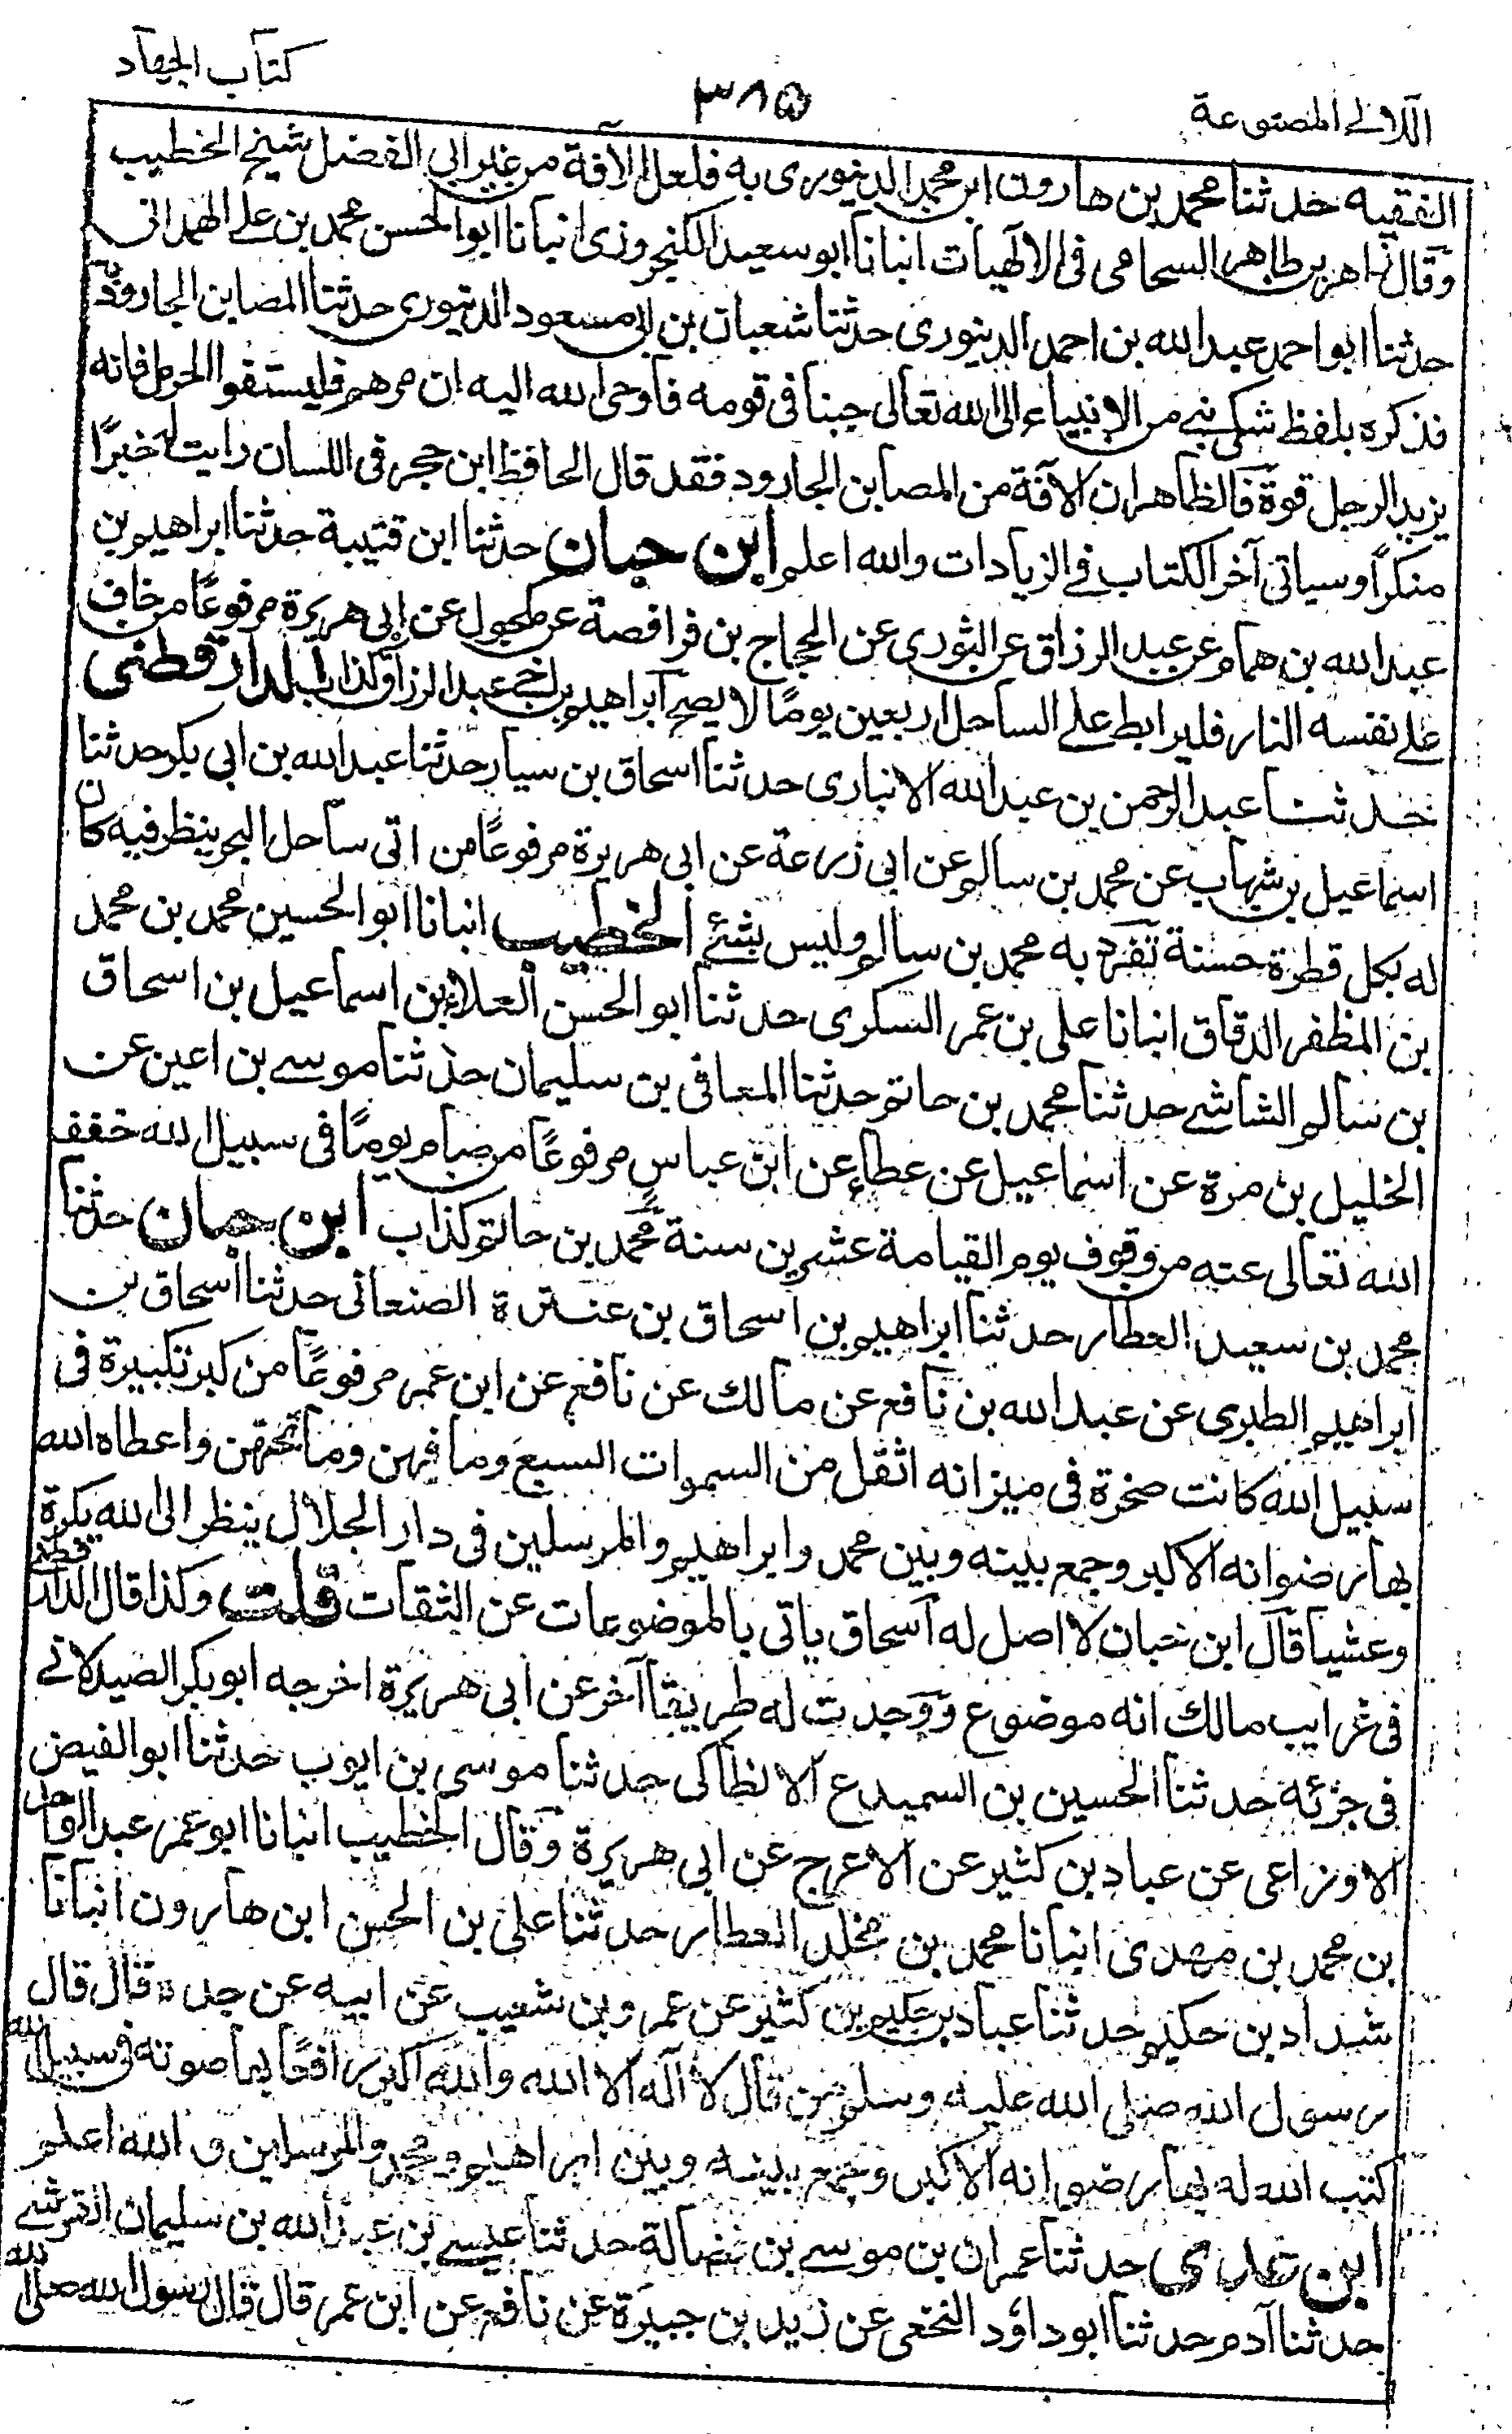 كتاب الجهاد
٣٨٥
اللآلي المصنوعة
الفقيه حدثنا محمد بن هارون ابن محمد الدينوري به فلعل الآفة من غير ابي الفضل شيخ الخطيب
وقال زاهر بن طاهر السحامي في الالهيات انبانا ابو سعيد الكنجروذي انبانا ابو الحسن محمد بن علي الهمداني
حدثنا ابو احمد عبد الله بن احمد الدينوري حدثنا شعبان بن ابي مسعود الدينوري حدثنا المصا بن الجارود
فذكره بلفظ شكى نبي من الانبياء الى الله تعالى جبنا في قومه فاوحى الله اليه ان مرهم فليستفوا الحرمل فانه
يزيد الرجل قوة فالظاهر ان الآفة من المصا بن الجارود فقد قال الحافظ ابن حجر في اللسان رايت له خبرًا
منكرًا وسياتي آخر الكتاب في الزيادات والله اعلم ابن حبان حدثنا ابن قتيبة حدثنا ابراهيم بن
عبد الله بن همام عن عبد الرزاق عن الثوري عن الحجاج بن فرافصة عن مكحول عن ابي هريرة مرفوعًا من خاف
على نفسه النار فليرابط على الساحل اربعين يومًا لا يصح ابراهيم بن اخي عبد الرزاق كذاب الدارقطني
حدثنا عبد الرحمن بن عبد الله الانباري حدثنا اسحاق بن سيار حدثنا عبد الله بن ابي بكر حدثنا
اسماعيل بن شهاب عن محمد بن سالم عن ابي زرعة عن ابي هريرة مرفوعًا من اتى ساحل البحر ينظر فيه كان
له بكل قطرة حسنة تفرد به محمد بن سالم وليس بشئ الخطيب انبانا ابو الحسين محمد بن محمد
بن المظفر الدقاق انبانا علي بن عمر السكري حدثنا ابو الحسن العلاء بن اسماعيل بن اسحاق
بن سالم الشاشي حدثنا محمد بن حاتم حدثنا المعافى بن سليمان حدثنا موسى بن اعين عن
الخليل بن مرة عن اسماعيل عن عطاء عن ابن عباس مرفوعًا من صام يومًا في سبيل الله خفف
الله تعالى عنه من وقوف يوم القيامة عشرين سنة محمد بن حاتم كذاب ابن حبان حدثنا
محمد بن سعيد العطار حدثنا ابراهيم بن اسحاق بن عنترة الصنعاني حدثنا اسحاق بن
ابراهيم الطبري عن عبد الله بن نافع عن مالك عن نافع عن ابن عمر مرفوعًا من كبر تكبيرة في
سبيل الله كانت صخرة في ميزانه اثقل من السموات السبع وما فيهن وما تحتهن واعطاه الله
بها رضوانه الاكبر وجمع بينه وبين محمد وابراهيم والمرسلين في دار الجلال ينظر الى الله بكرة
وعشيا قال ابن حبان لا اصل له اسحاق ياتي بالموضوعات عن الثقات قلت وكذا قال الدارقطني
في غرايب مالك انه موضوع ووجدت له طريقا آخر عن ابي هريرة اخرجه ابو بكر الصيدلاني
في جزئه حدثنا الحسين بن السميدع الانطاكي حدثنا موسى بن ايوب حدثنا ابو الفيض
الاوزاعي عن عباد بن كثير عن الاعرج عن ابي هريرة وقال الخطيب انبانا ابو عمر عبد الواحد
بن محمد بن مهدي انبانا محمد بن مخلد العطار حدثنا علي بن الحسن ابن هارون انبانا
شداد بن حكيم حدثنا عباد بن حكيم بن كثير عن عمرو بن شعيب عن ابيه عن جده قال قال
رسول الله صلى الله عليه وسلم من قال لا اله الا الله والله اكبر رافعًا بها صوته في سبيل الله
كتب الله له بها رضوانه الاكبر وجمع بينه وبين ابراهيم ومحمد والمرسلين والله اعلم
ابن عدي حدثنا عمران بن موسى بن فضالة حدثنا عيسى بن عبد الله بن سليمان القرشي
حدثنا آدم حدثنا ابو داود النخعي عن زيد بن جبيرة عن نافع عن ابن عمر قال قال رسول الله صلى الله